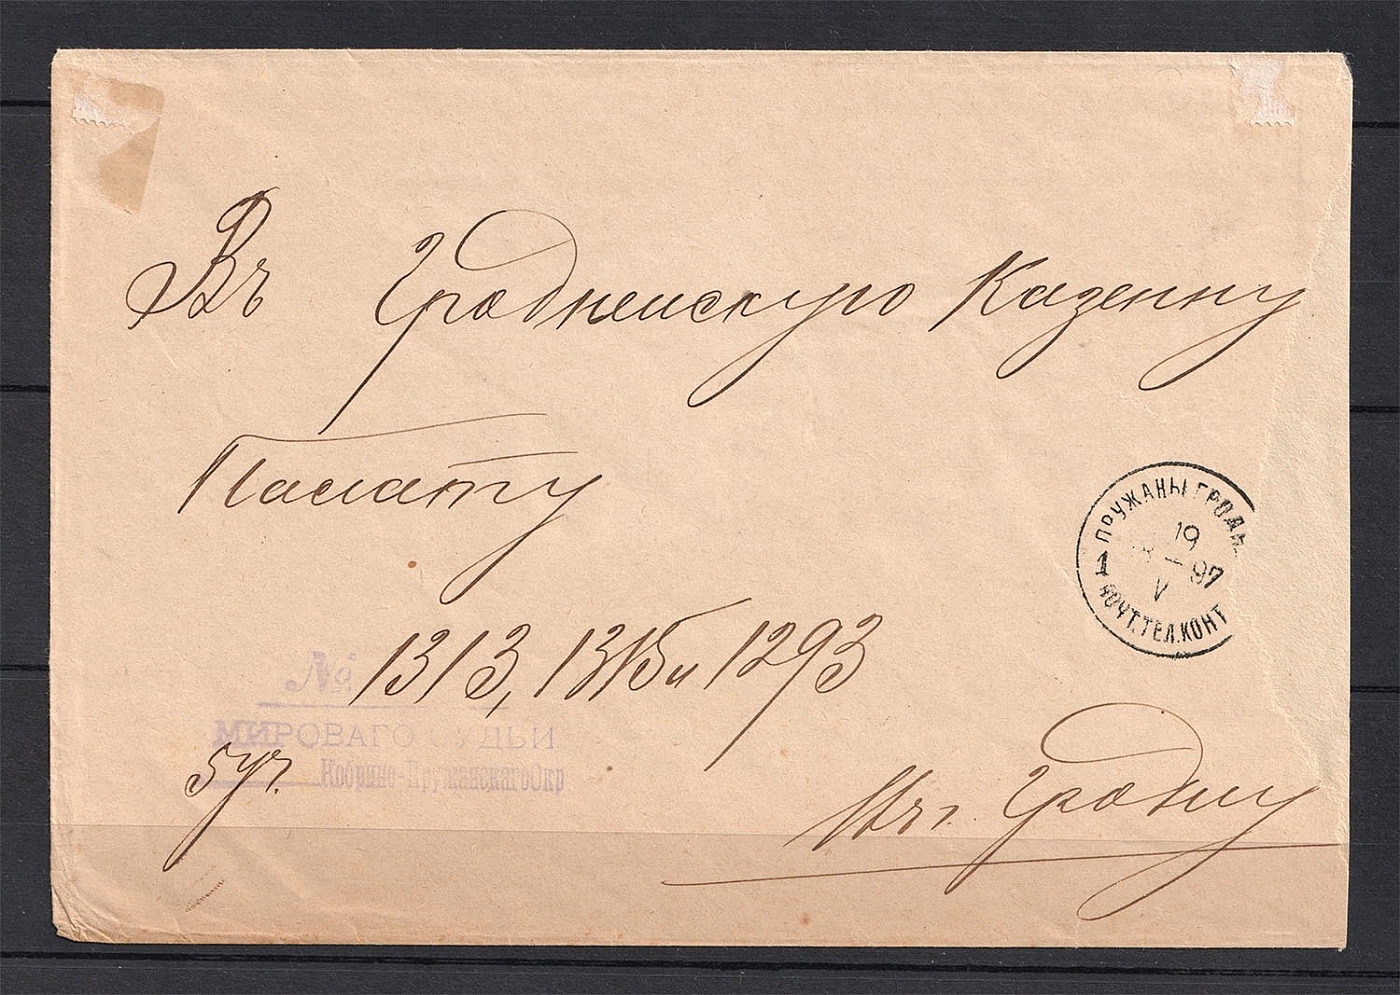 Въ Гродненскую Казенну
Палату
ПРУЖАНЫ ГРОДН.
19
V 97
1
ПОЧТ.ТЕЛ.КОНТ
№ 1313, 1315 и 1293
МИРОВАГО СУДЬИ
5 уч. Кобрино-Пружанскаго Окр
Въ г. Гродну